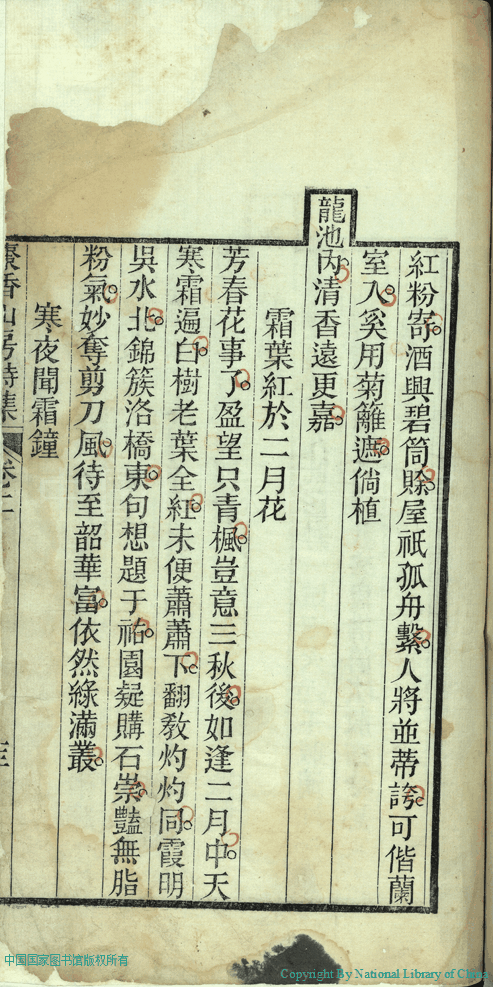 紅粉寄酒興碧筒賒屋祇孤舟繫人將並蒂誇可偕蘭
室入奚用菊籬遮倘植
龍池內清香遠更嘉
霜葉紅於二月花
芳春花事了盈望只青楓豈意三秋後如逢二月中天
寒霜遍白樹老葉全紅未便蕭蕭下翻教灼灼同霞明
吳水北錦簇洛橋東句想題于祐園疑購石崇豔無脂
粉氣妙奪剪刀風待至韶華富依然綠滿叢
寒夜聞霜鐘
香山房詩集
卷二
中国国家图书馆版权所有
Copyright By National Library of China